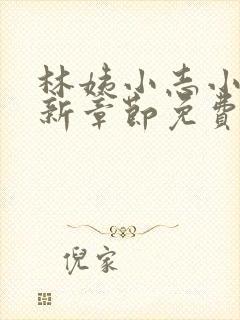 林姨小志小
新章節免費
倪家